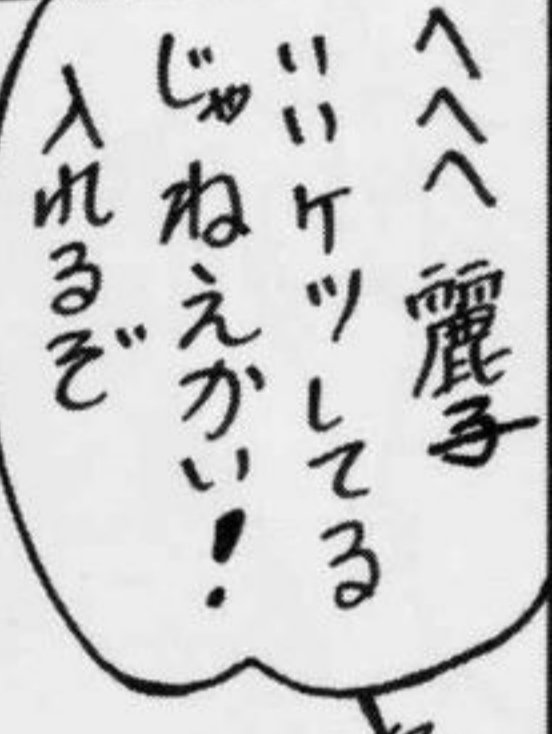 へへへ麗子
いいケツしてる
じゃねえかい!
入れるぞ